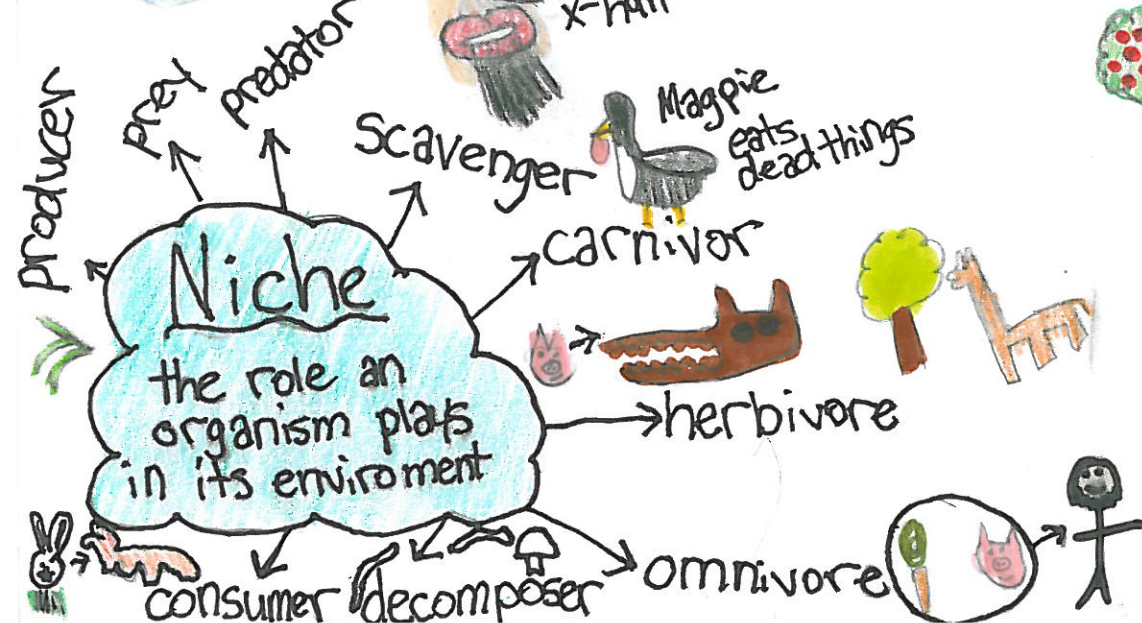 x-hun
predator
prey
producer
scavenger
Magpie
eats
dead things
carnivor
Niche
the role an
organism plays
in its enviroment
herbivore
omnivore
consumer
decomposer